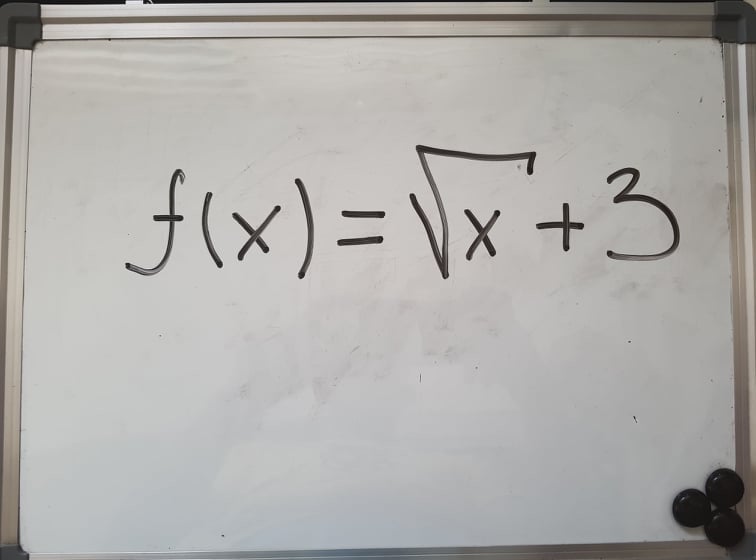 f(x) = √x + 3